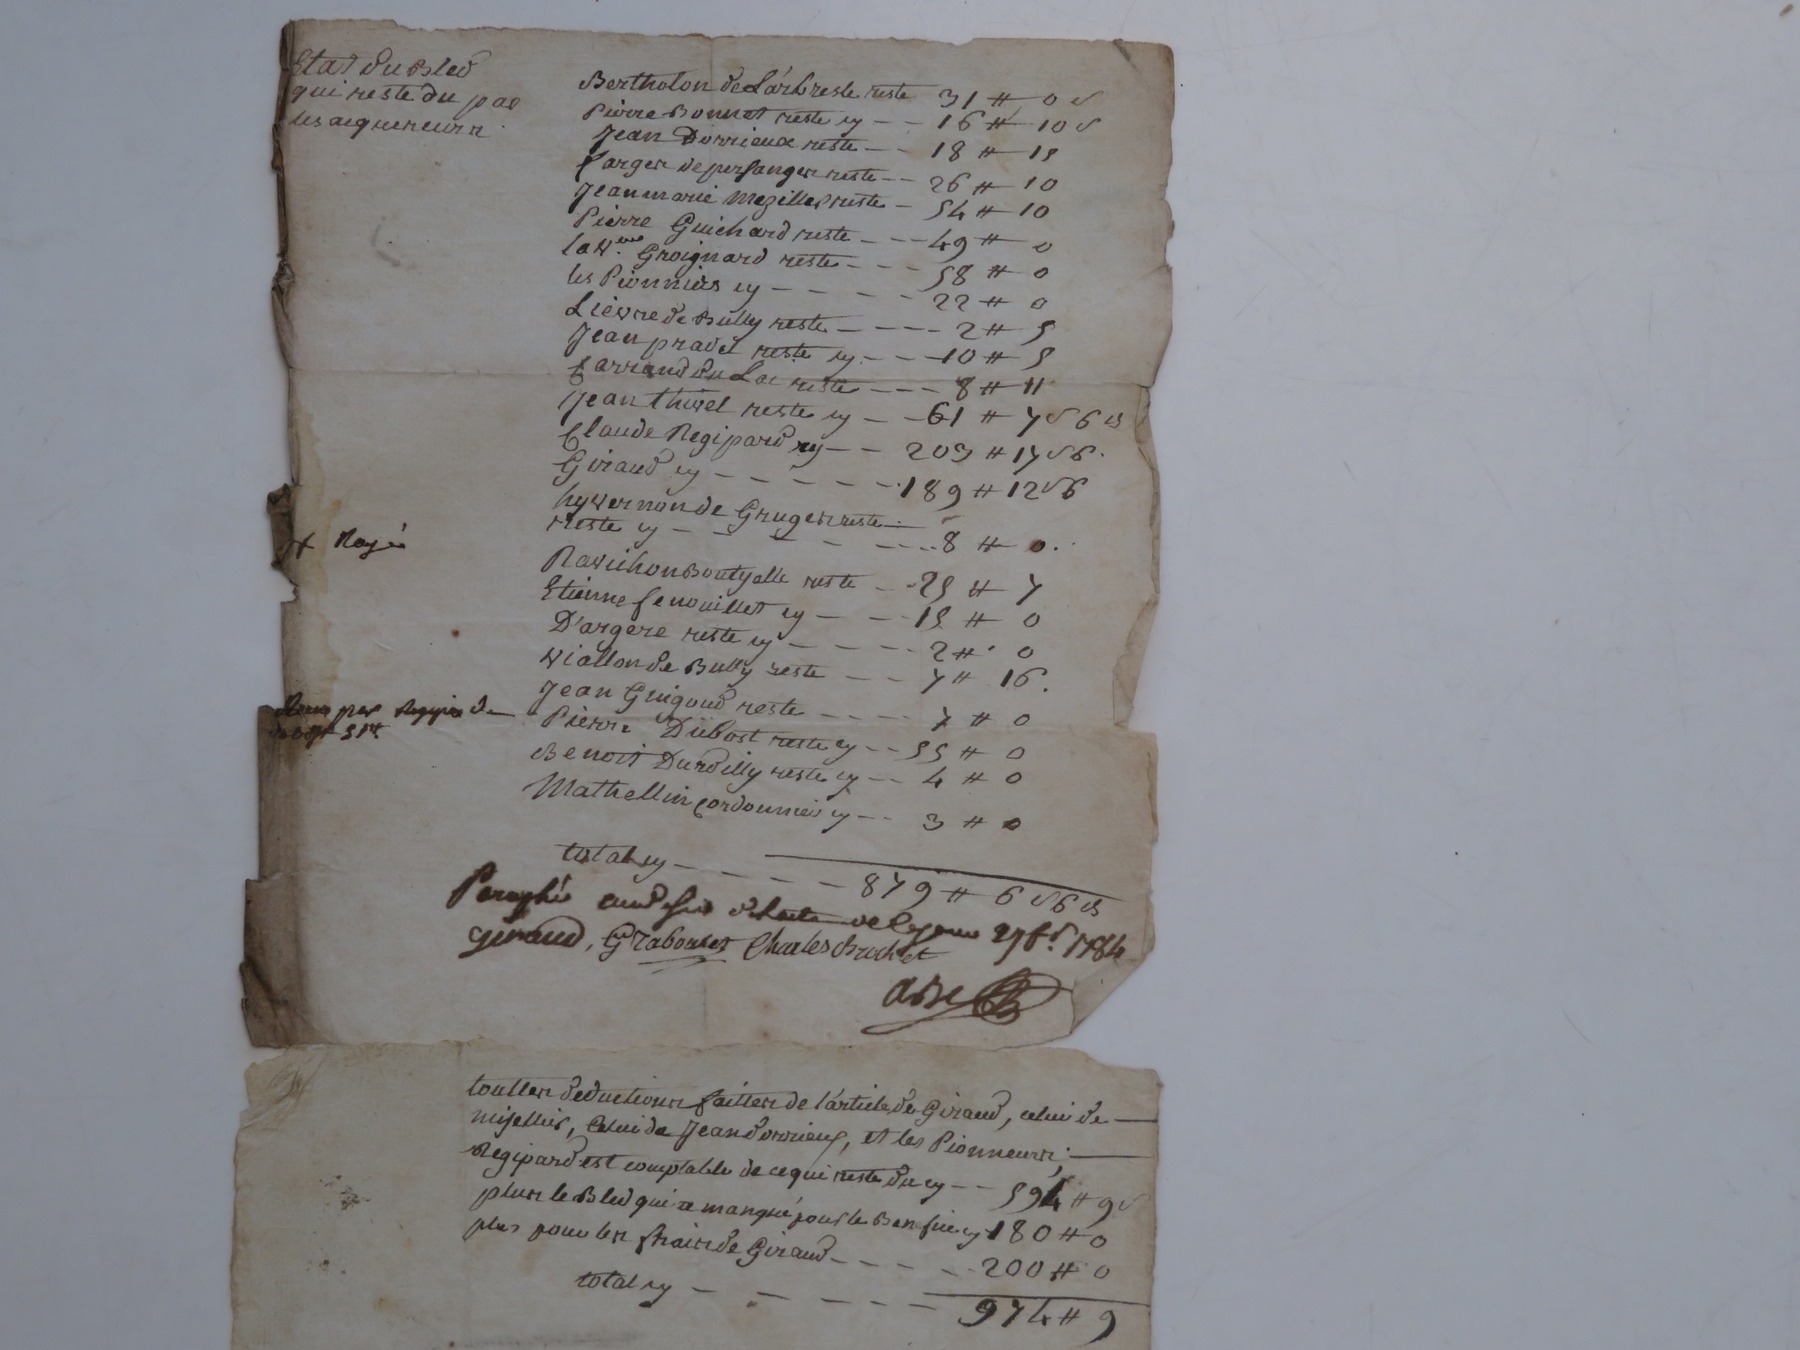 Etat du Bled
qui reste du par
les acquereurs
Bertholon de Larbresle reste 31 # 0 s
Pierre Bonnet reste cy -- 16 # 10 s
Jean Dorrieux reste -- 18 # 15
farger de persanger reste -- 26 # 10
Jean marie Mezillier reste - 54 # 10
Pierre Guichard reste --- 49 # 0
la Ve. Groignard reste --- 58 # 0
les Pionniers cy ----- 22 # 0
Lievre de Bully reste ---- 2 # 5
Jean pradel reste cy --- 10 # 5
farraud du Lac reste --- 8 # 11
Jean thivel reste cy -- 61 # 7 s 6 d
Claude Regipard cy -- 203 # 17 s 6.
Giraud cy ------ 189 # 12 s 6
hyvernon de Gruger reste
reste cy ------ 8 # 0.
+ Rayé
Ravichon Boutyalle reste -- 25 # 7
Etienne fenouillet cy --- 15 # 0
D'argere reste cy ---- 2 # 0
Viallon de Bully reste -- 7 # 16.
Jean Guigoud reste ---- 7 # 0
par Regipard
Pierre Dubost reste cy -- 55 # 0
Benoit Durdilly reste cy -- 4 # 0
Mathellin Cordonnier cy -- 3 # 0
total cy ----- 879 # 6 s 6 d
Paraphé 27 1784
Giraud, Grabouset Charles Brochet
touttes deductions faittes de l'article de Giraud, celui de
mizellier, Celui de Jean dorrieux, et les Pionneurs;
Regipard est comptable de ce qui reste du cy -- 594 # 9 s
plus le Bled qui a manqué pour le Benefice cy 180 # 0
plus pour les frais de Giraud ----- 200 # 0
total cy ------ 974 # 9